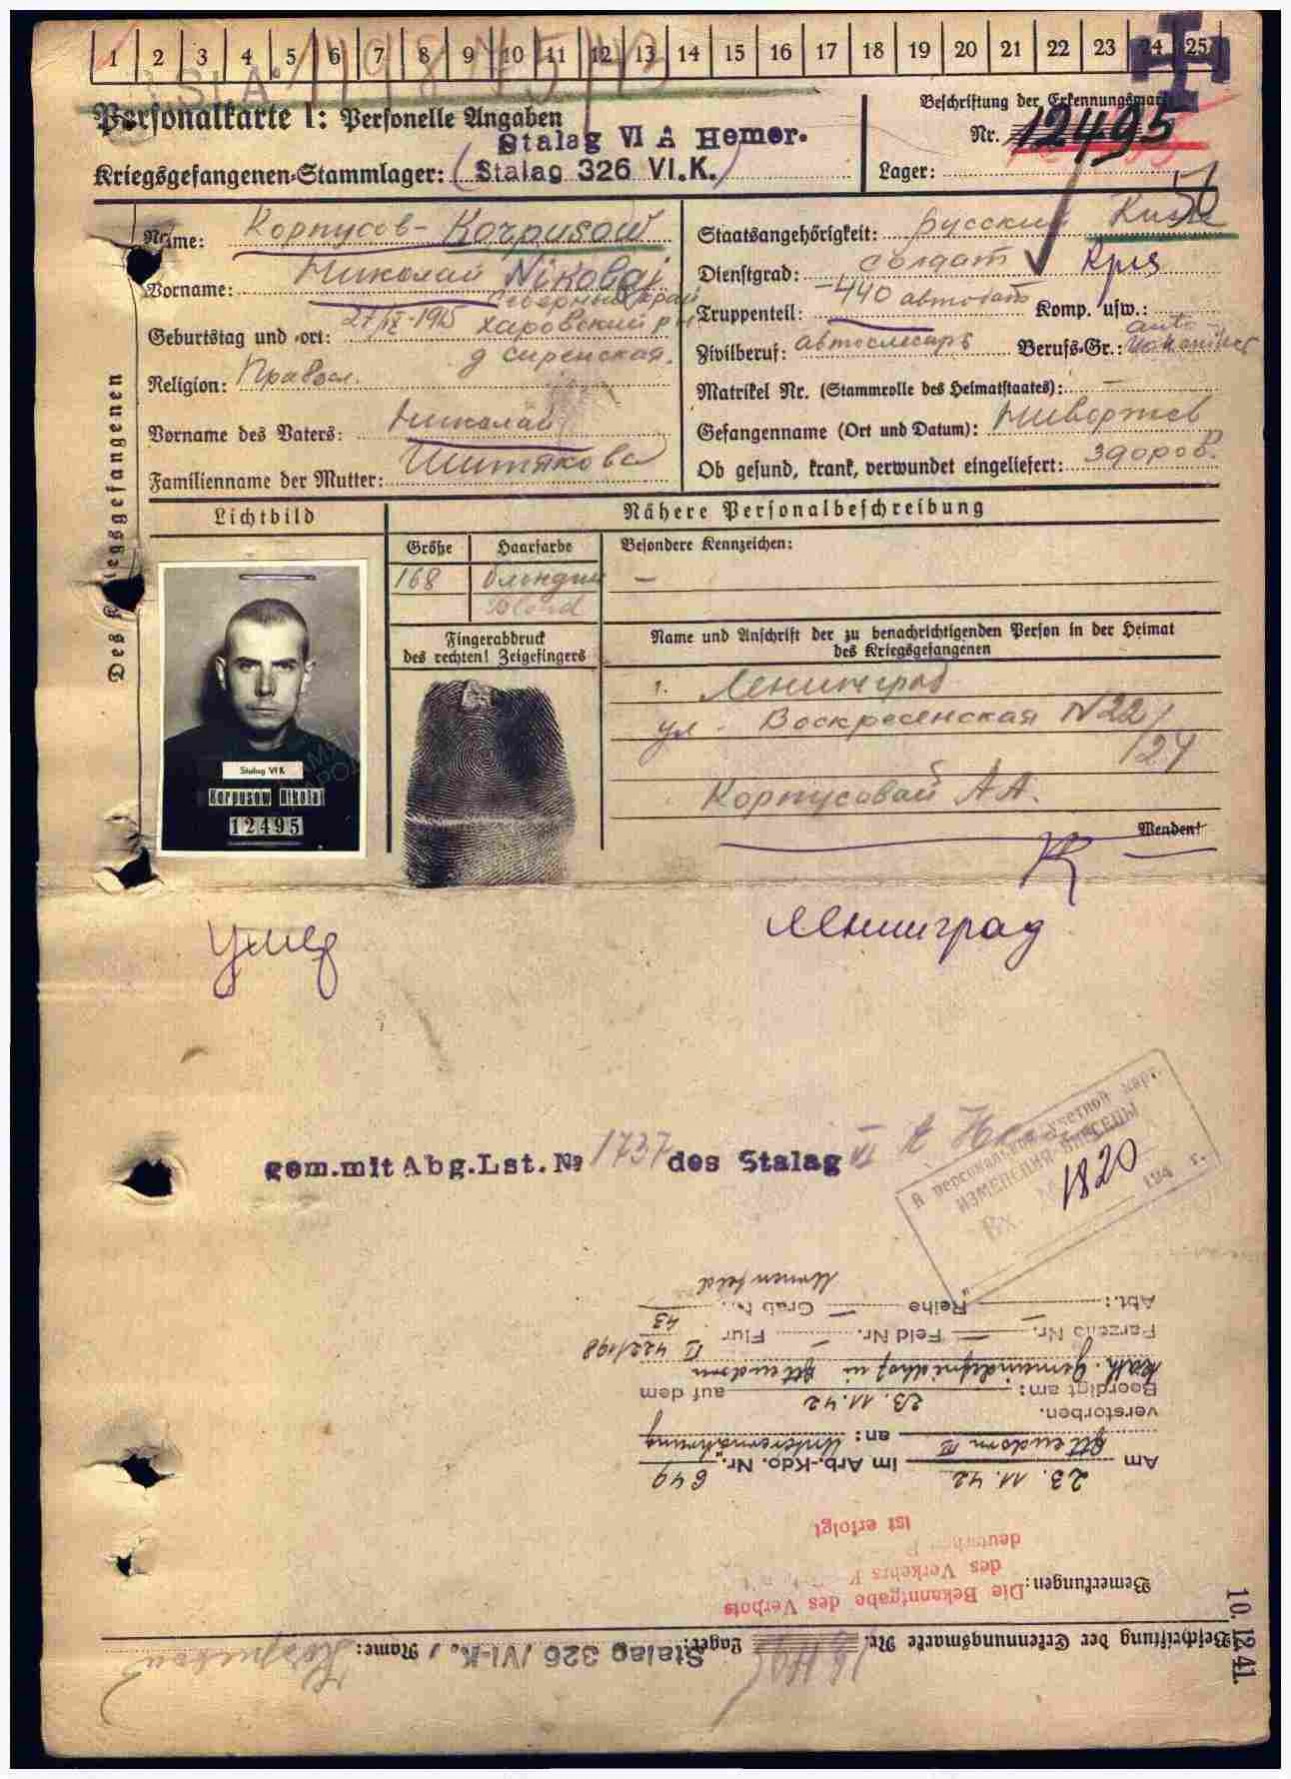 1 2 3 4 5 6 7 8 9 10 11 12 13 14 15 16 17 18 19 20 21 22 23 24 25
Personalkarte I: Personelle Angaben
Beschriftung der Erkennungsmarke
Stalag VI A Hemer.
Nr. 12495
Kriegsgefangenen-Stammlager: (Stalag 326 VI.K.)
Lager:
Des Kriegsgefangenen
Name: Корпусов - Korpusow
Vorname: Николай Nikolai
Северный край
Geburtstag und -ort: 27/IX-1915 харовский р-н
д сиренская.
Religion: Правосл.
Vorname des Vaters: Николай
Familienname der Mutter: Шитякова
Staatsangehörigkeit: русский Russe
Dienstgrad: солдат
Truppenteil: -440 автобат Komp. usw.:
Zivilberuf: автослесарь Berufs-Gr.: auto
Matrikel Nr. (Stammrolle des Heimatstaates): —
Gefangenname (Ort und Datum):
Ob gesund, krank, verwundet eingeliefert: здоров.
Lichtbild
Nähere Personalbeschreibung
Größe
Haarfarbe
Besondere Kennzeichen:
168
блондин
—
Blond
Fingerabdruck
des rechten! Zeigefingers
Name und Anschrift der zu benachrichtigenden Person in der Heimat
des Kriegsgefangenen
г. Ленинград
ул - Воскресенская N 22/
/24
Корпусовой А А.
Wenden!
Stalag VI K
Korpusow Nikolai
12495
умер
Ленинград
gem. mit Abg. Lst. № 1737 des Stalag VI A
В персональной учетной карт.
ИЗМЕНЕНИЯ ВНЕСЕНЫ
Вх. 1820
194 г.
Beschriftung der Erkennungsmarke Nr. Lager: Stalag 326 /VI-K./ Name: Korpusow
Bemerkungen:
Die Bekanntgabe des Verbots
des Verkehrs
ist erfolgt
Am 23. 11. 42 im Arb.-Kdo. Nr. 649
Attendorn III an: Unterernährung
verstorben.
Beerdigt am: 23. 11. 42 auf dem
Kath. Gemeindefriedhof in Attendorn
Parzelle Nr. — Feld Nr. — Flur II 422/198
43
Abt.: — Reihe — Grab Nr.
10. 12 41.